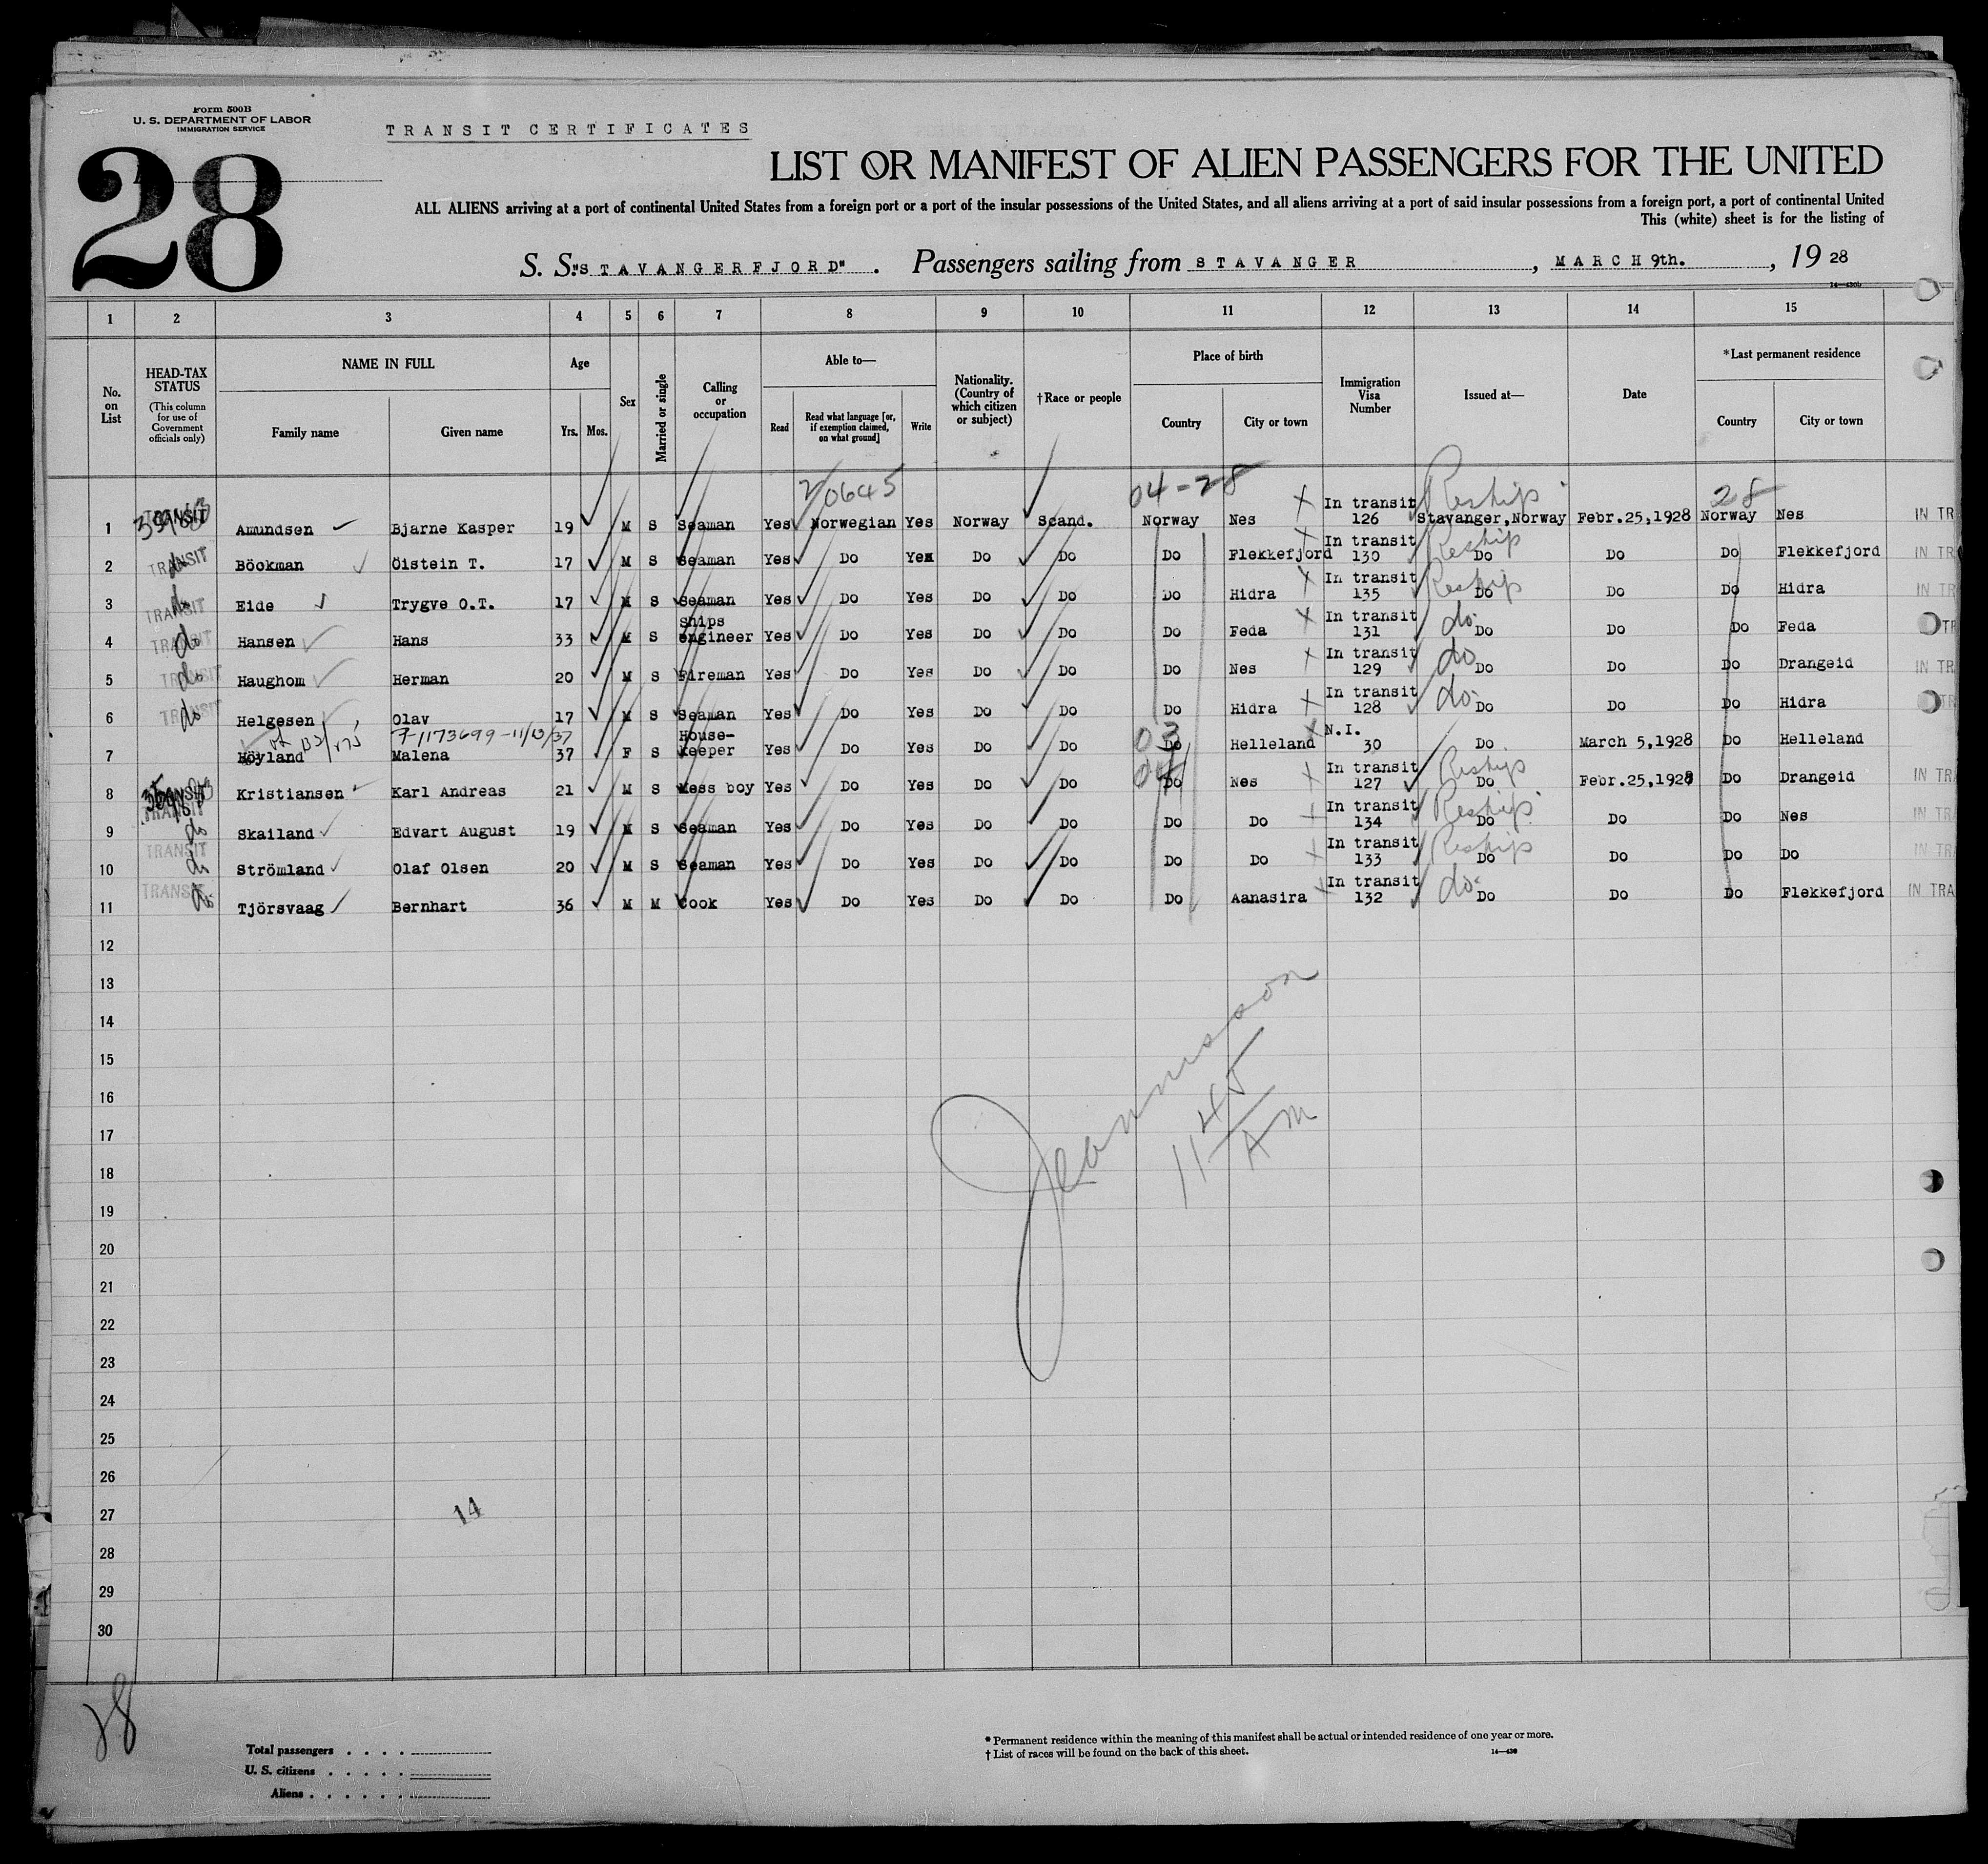 Form 500B
U. S. DEPARTMENT OF LABOR
IMMIGRATION SERVICE
TRANSIT CERTIFICATES
28
LIST OR MANIFEST OF ALIEN PASSENGERS FOR THE UNITED
ALL ALIENS arriving at a port of continental United States from a foreign port or a port of the insular possessions of the United States, and all aliens arriving at a port of said insular possessions from a foreign port, a port of continental United
This (white) sheet is for the listing of
S. S. "STAVANGERFJORD". Passengers sailing from STAVANGER, MARCH 9th., 19 28
14—430b
1 2 3 4 5 6 7 8 9 10 11 12 13 14 15
No. on List HEAD-TAX STATUS (This column for use of Government officials only) NAME IN FULL Family name Given name Age Yrs. Mos. Sex Married or single Calling or occupation Able to— Read Read what language [or, if exemption claimed, on what ground] Write Nationality. (Country of which citizen or subject) †Race or people Place of birth Country City or town Immigration Visa Number Issued at— Date *Last permanent residence Country City or town
2/0645 04-28 Reship 28
1 TRANSIT Amundsen Bjarne Kasper 19 M S Seaman Yes Norwegian Yes Norway Scand. Norway Nes In transit 126 Stavanger, Norway Febr.25,1928 Norway Nes IN TR
2 TRANSIT do Böokman Öistein T. 17 M S Seaman Yes Do Yes Do Do Do Flekkefjord In transit 130 Reship Do Do Do Flekkefjord IN TR
3 TRANSIT do Eide Trygve O.T. 17 M S Seaman Yes Do Yes Do Do Do Hidra In transit 135 Reship Do Do Do Hidra IN TR
4 TRANSIT do Hansen Hans 33 M S Ships engineer Yes Do Yes Do Do Do Feda In transit 131 do Do Do Do Feda TR
5 TRANSIT do Haughom Herman 20 M S Fireman Yes Do Yes Do Do Do Nes In transit 129 do Do Do Do Drangeid IN TR
6 TRANSIT do Helgesen Olav 17 M S Seaman Yes Do Yes Do Do Do Hidra In transit 128 do Do Do Do Hidra TR
7-1173699-11/13/37 03
7 Höyland Malena 37 F S House-keeper Yes Do Yes Do Do Do Helleland N.I. 30 Do March 5,1928 Do Helleland
04
8 TRANSIT Kristiansen Karl Andreas 21 M S Mess boy Yes Do Yes Do Do Do Nes In transit 127 Reship Do Febr.25,1928 Do Drangeid IN TRA
9 TRANSIT do Skailand Edvart August 19 M S Seaman Yes Do Yes Do Do Do Do In transit 134 Reship Do Do Do Nes IN TRA
10 TRANSIT do Strömland Olaf Olsen 20 M S Seaman Yes Do Yes Do Do Do Do In transit 133 Reship Do Do Do Do IN TR
11 TRANSIT do Tjörsvaag Bernhart 36 M M Cook Yes Do Yes Do Do Do Aanasira In transit 132 do Do Do Do Flekkefjord IN TRA
12
13
14
15
16
17
18
19
20
21
22
23
24
25
26
27
28
29
30
11 45 AM
14
28
Total passengers
U. S. citizens
Aliens
*Permanent residence within the meaning of this manifest shall be actual or intended residence of one year or more.
†List of races will be found on the back of this sheet.
14—430